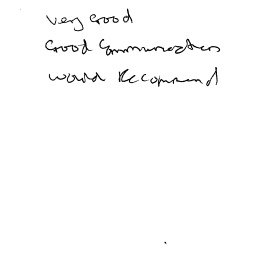 Very Good
Good Communication
would Recommend